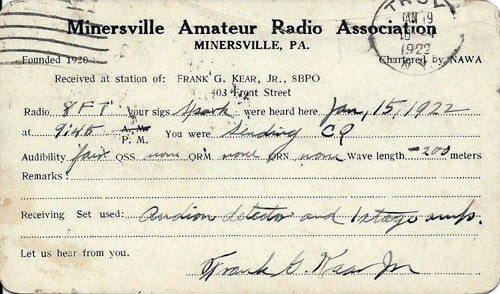 Minersville Amateur Radio Association
MINERSVILLE, PA.
Founded 1920
Chartered by NAWA
JAN 19
1922
Received at station of: FRANK G. KEAR, JR., 8BPO
403 Front Street
Radio 8FT your sigs Spark were heard here Jan, 15, 1922
at 9:45 A. M. P. M. You were Sending CQ
Audibility fair QSS none QRM none QRN none Wave length -200 meters
Remarks:
Receiving Set used: Audion detector and 1 stage amp.
Let us hear from you.
Frank G. Kear Jr